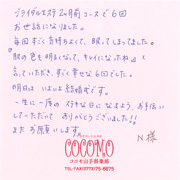 ブライダルエステ2ヶ月前コースで6回
お世話になりました。
毎回すごく気持ちよくて、眠ってしまってました。
肌の色も明るくなって、キレイになったね と
言っていただき、すごく幸せな6回でした。
明日は いよいよ結婚式です。
一生に一度の ステキな日に なるよう、お手伝い
して下さって ありがとうございました!!
また お願いします。
N様
COCOMO
ココモ白子倶楽部
TEL・FAX(0775)75-6675